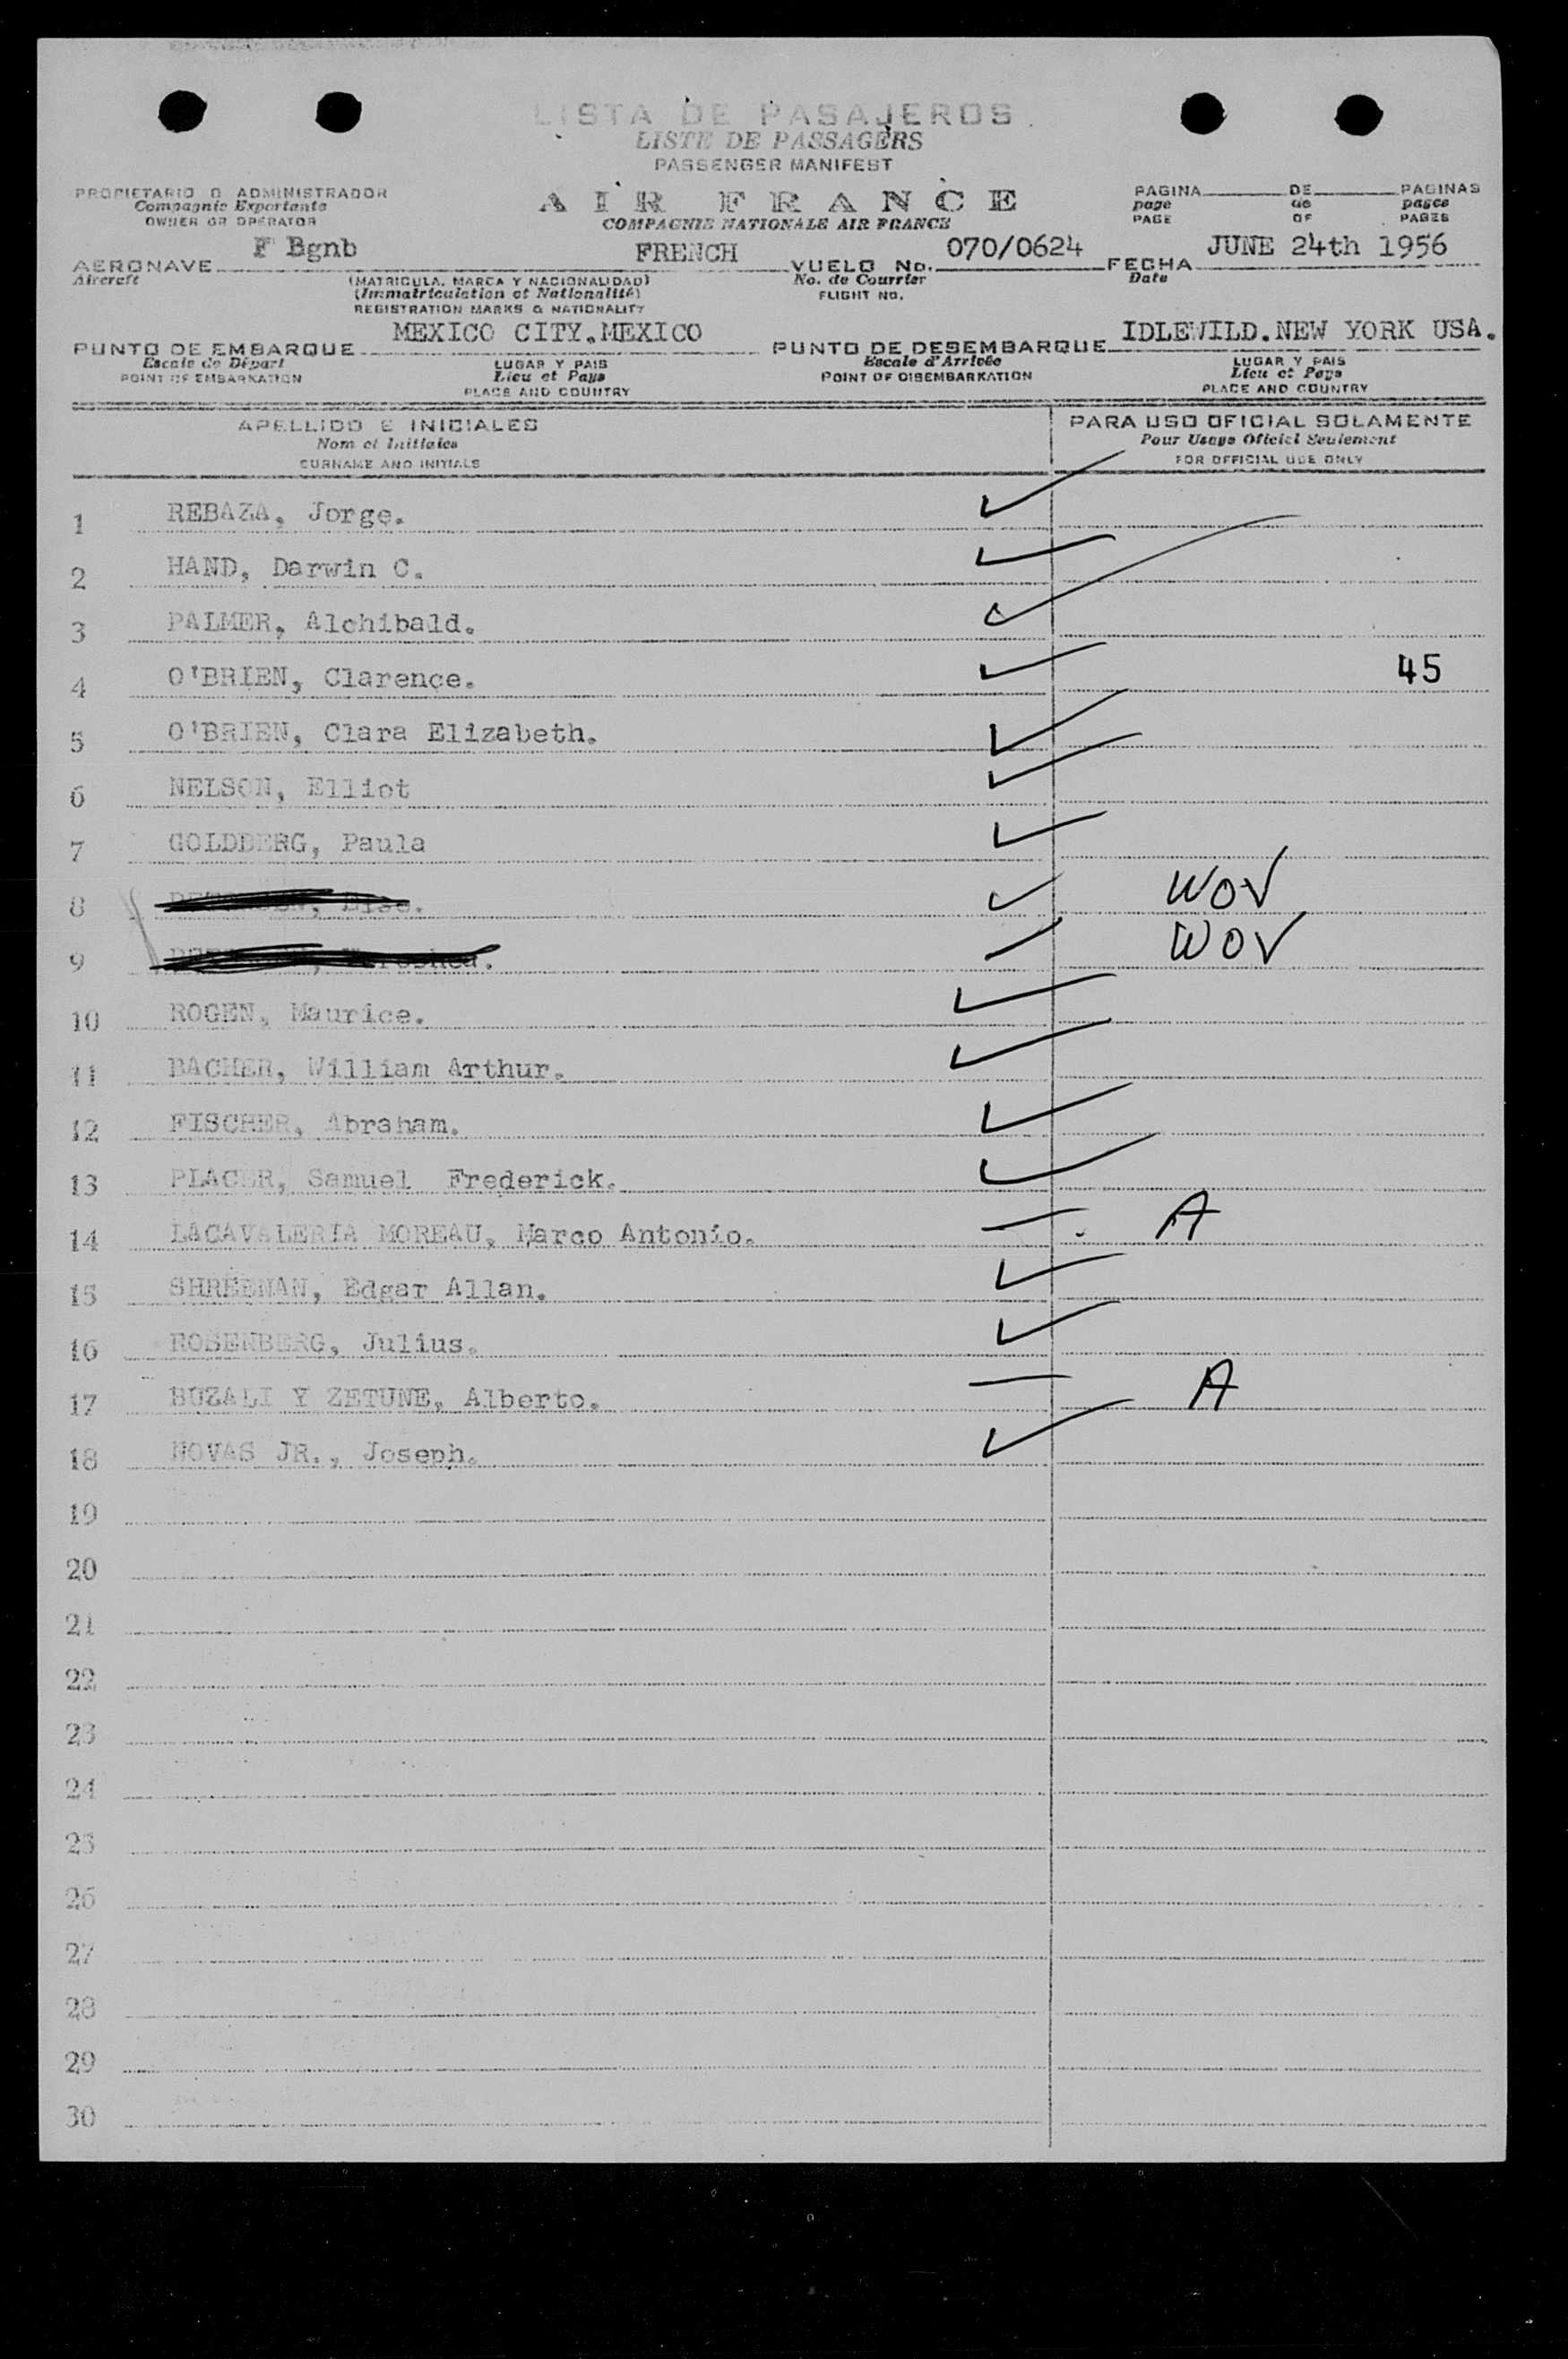 LISTA DE PASAJEROS
LISTE DE PASSAGERS
PASSENGER MANIFEST
PROPIETARIO O ADMINISTRADOR
Compagnie Exportante
OWNER OR OPERATOR
AIR FRANCE
COMPAGNIE NATIONALE AIR FRANCE
PAGINA DE PAGINAS
page de pages
PAGE OF PAGES
AERONAVE F Bgnb FRENCH VUELO No. 070/0624 FECHA JUNE 24th 1956
Aircraft (MATRICULA, MARCA Y NACIONALIDAD) No. de Courrier Date
(Immatriculation et Nationalité) FLIGHT NO.
REGISTRATION MARKS & NATIONALITY
PUNTO DE EMBARQUE MEXICO CITY.MEXICO PUNTO DE DESEMBARQUE IDLEWILD.NEW YORK USA.
Escale de Départ LUGAR Y PAIS Escale d'Arrivée LUGAR Y PAIS
POINT OF EMBARKATION Lieu et Pays POINT OF DISEMBARKATION Lieu et Pays
PLACE AND COUNTRY PLACE AND COUNTRY
APELLIDO E INICIALES PARA USO OFICIAL SOLAMENTE
Nom et Initiales Pour Usage Oficiel Seulement
SURNAME AND INITIALS FOR OFFICIAL USE ONLY
1 REBAZA, Jorge. ✓
2 HAND, Darwin C. ✓
3 PALMER, Alchibald. ✓
4 O'BRIEN, Clarence. ✓ 45
5 O'BRIEN, Clara Elizabeth. ✓
6 NELSON, Elliot ✓
7 GOLDBERG, Paula ✓
8 ✓ WOV
9 WOV
10 ROGEN, Maurice. ✓
11 BACHER, William Arthur. ✓
12 FISCHER, Abraham. ✓
13 PLACER, Samuel Frederick. ✓
14 LACAVALERIA MOREAU, Marco Antonio. — A
15 SHREENAN, Edgar Allan. ✓
16 ROSENBERG, Julius. ✓
17 BUZALI Y ZETUNE, Alberto. — A
18 NOVAS JR., Joseph. ✓
19
20
21
22
23
24
25
26
27
28
29
30